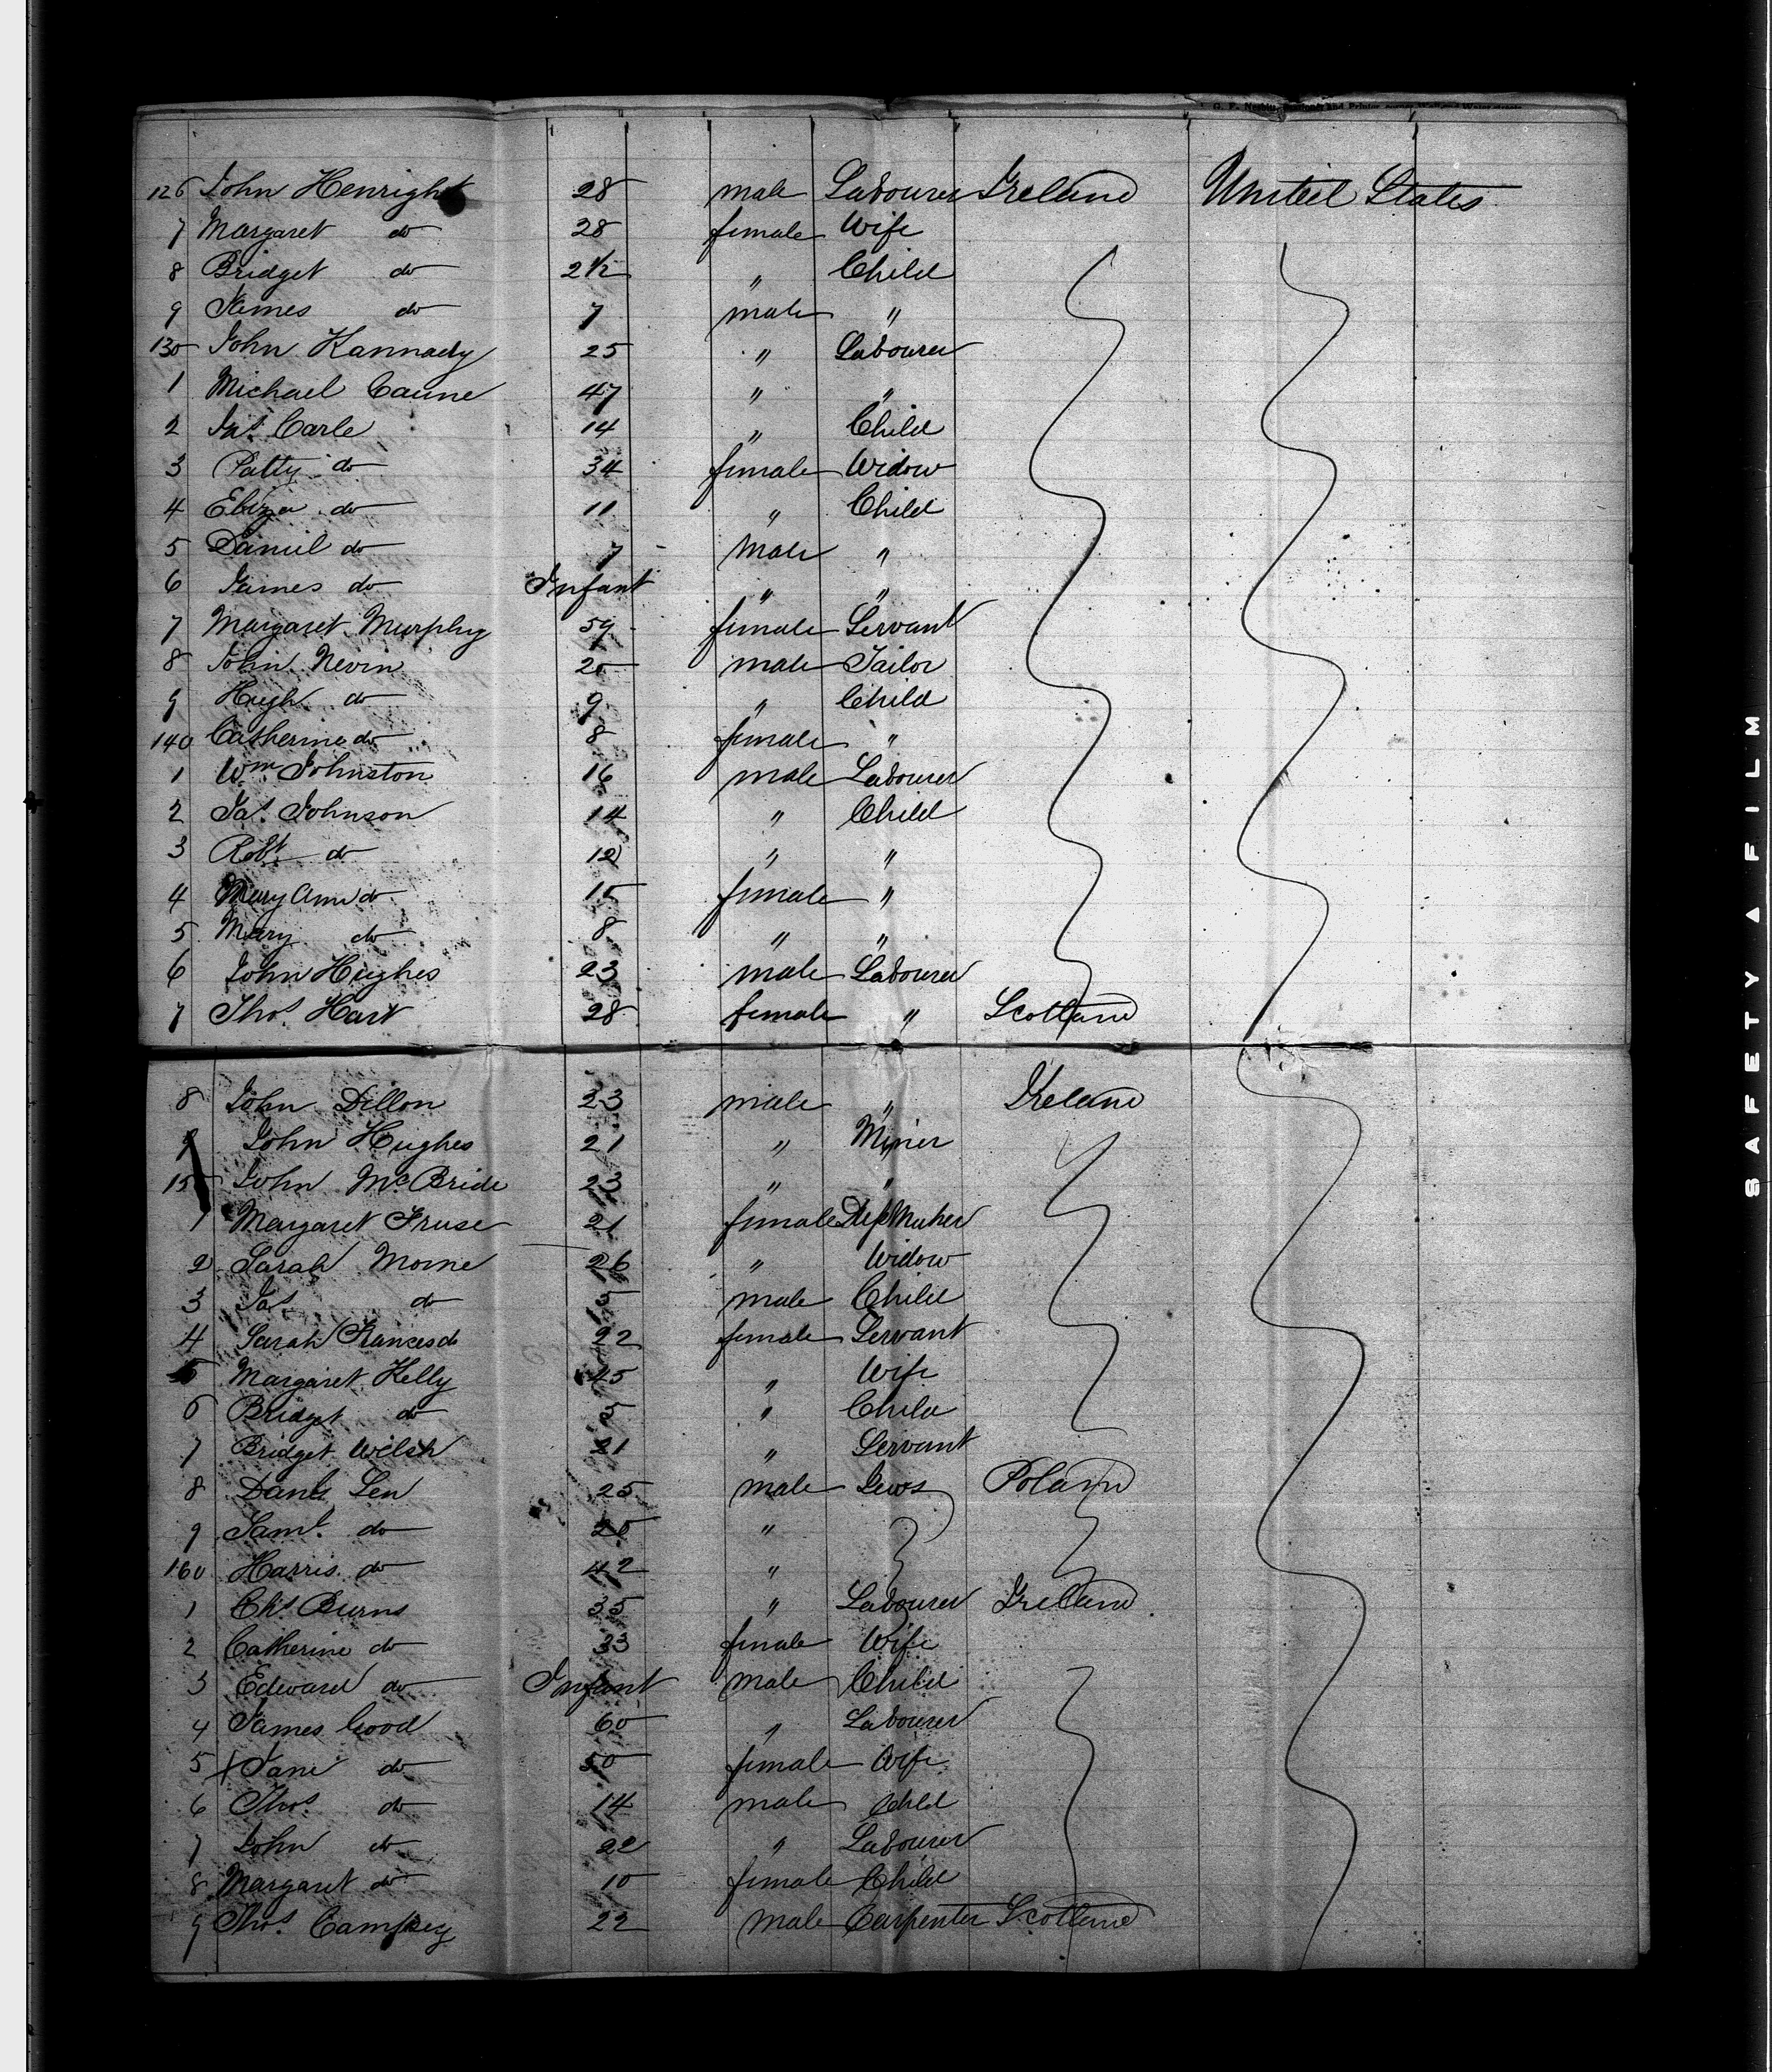 126 John Henright 28 male Labourer Ireland United States
7 Margaret do 28 female Wife
8 Bridget do 2 1/2 " Child
9 James do 7 male "
130 John Kannady 25 " Labourer
1 Michael Caune 47 " "
2 Jas. Carle 14 " Child
3 Patty do 34 female Widow
4 Eliza do 11 " Child
5 Daniel do 7 male "
6 James do Infant " "
7 Margaret Murphy 59 female Servant
8 John Nevin 20 male Tailor
9 Hugh do 9 " Child
140 Catherine do 8 female "
1 Wm Johnston 16 male Labourer
2 Jas. Johnson 14 " Child
3 Robt do 12 " "
4 Mary Ann do 15 female "
5 Mary do 8 " "
6 John Hughes 23 male Labourer
7 Thos. Hart 28 female " Scotland
8 John Dillon 23 male " Ireland
9 John Hughes 21 " Miner
150 John McBride 23 " "
1 Margaret Fruse 21 female
2 Sarah Morne 26 " Widow
3 Jas. do male Child
4 Sarah Frances do 22 female Servant
5 Margaret Kelly 45 " Wife
6 Bridget do " Child
7 Bridget Welsh 21 " Servant
8 Danl Len 25 male Jews Poland
9 Saml. do 20 "
160 Harris do 42 "
1 Chs Burns 35 " Labourer Ireland
2 Catherine do 33 female Wife
3 Edward do Infant male Child
4 James Good 60 " Labourer
5 Jane do 50 female Wife
6 Thos do 14 male Child
7 John do 22 " Labourer
8 Margaret do 10 female Child
9 Thos. 22 male Carpenter Scotland
SAFETY FILM